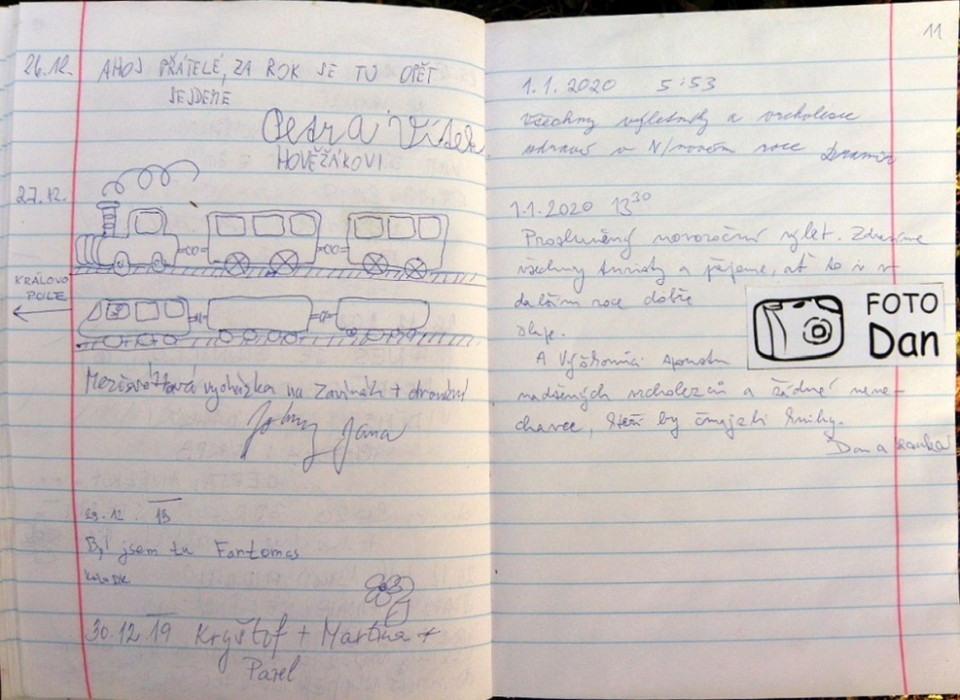 26.12. AHOJ PŘÁTELÉ, ZA ROK SE TU OPĚT
SEJDEME
Petr a Vítek
HOVĚŽÁKOVI
27.12.
KRÁLOVO
POLE
Mezisvátková vycházka na Zavináč + dronění
Johny Jana
29.12. 19
Byl jsem tu Fantomas
30.12.19 Kryštof + Martina +
Pavel
11
1.1.2020 5:53
Všechny výletníky a vrcholaše
zdraví v N/novém roce
1.1.2020 13³⁰
Prosluněný novoroční výlet. Zdravíme
všechny turisty a přejeme, ať to i v
dalším roce dobře
šlape.
A Výškonici spoustu
nadšených vrcholezců a žádné nene-
chavce, kteří by čmajzli knihy.
Dan a Lenka
FOTO
Dan